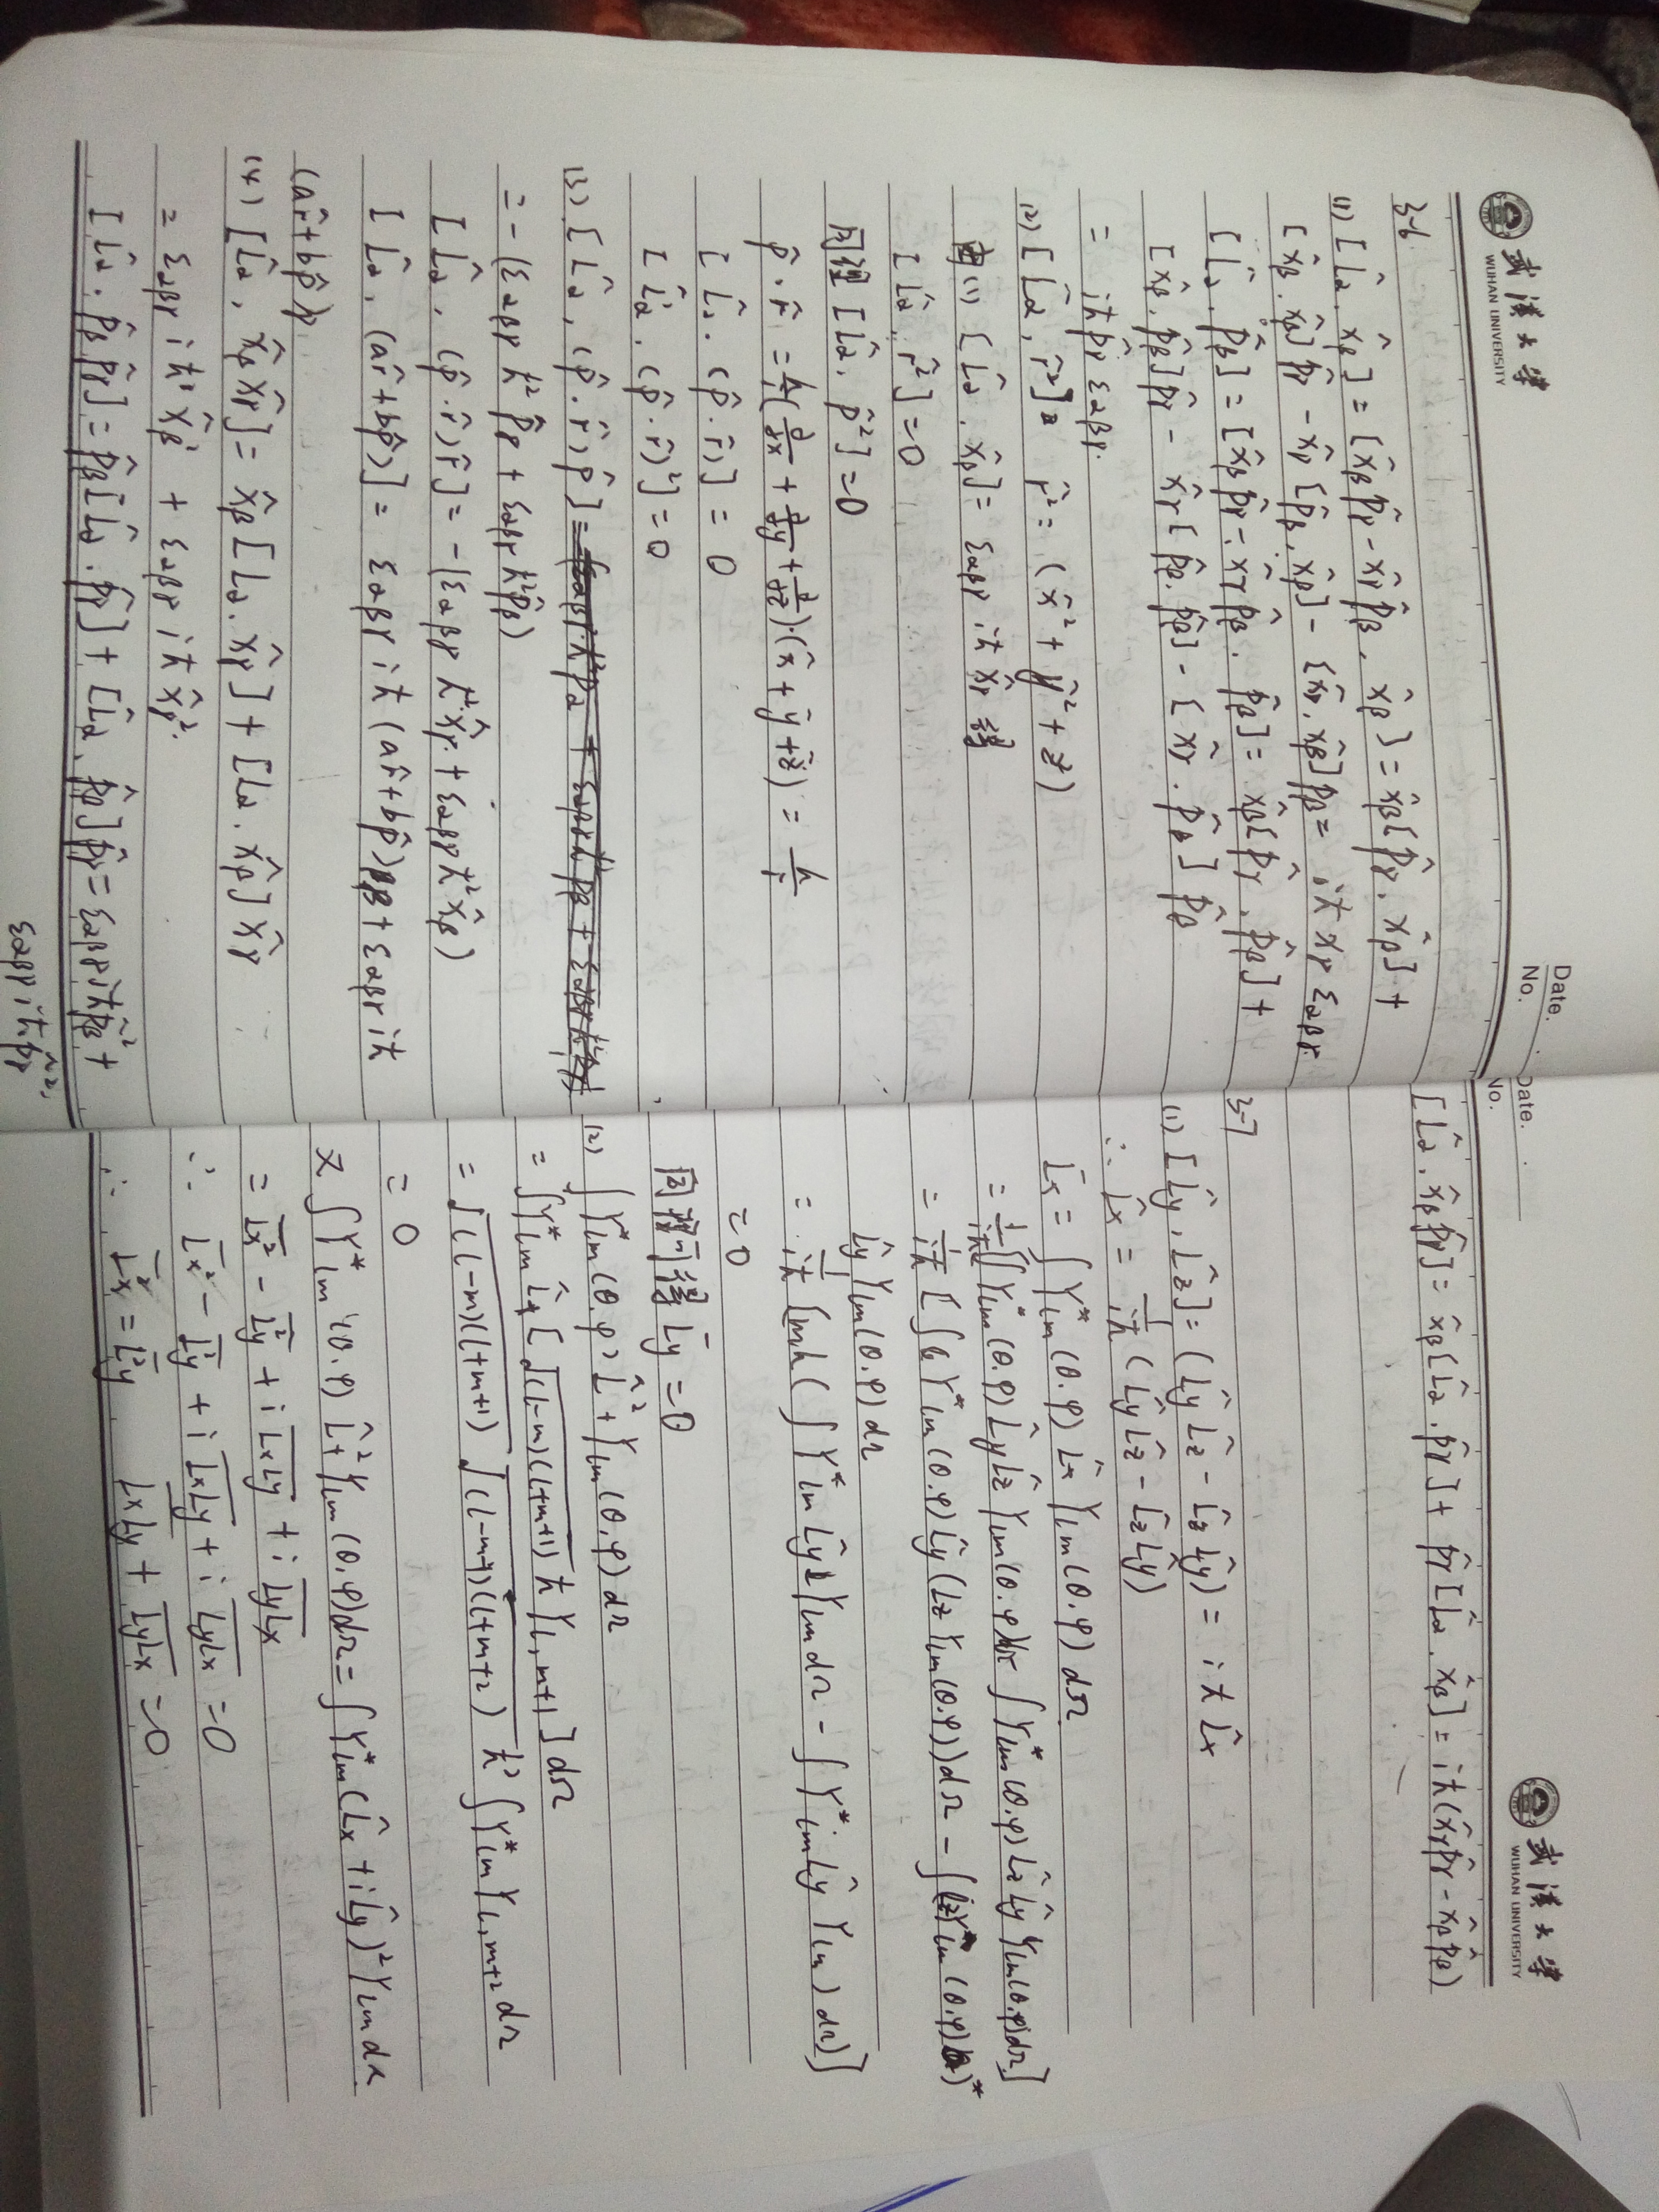 武漢大学
WUHAN UNIVERSITY
Date.
No.
3-6
(1) [L̂α, x̂β] = [x̂βp̂γ - x̂γp̂β, x̂β] = x̂β[p̂γ, x̂β] +
[x̂β, x̂β]p̂γ - x̂γ[p̂β, x̂β] - [x̂γ, x̂β]p̂β = iħ xγ εαβγ.
[L̂α, p̂β] = [x̂βp̂γ - x̂γp̂β, p̂β] = x̂β[p̂γ, p̂β] +
[x̂β, p̂β]p̂γ - x̂γ[p̂β, p̂β] - [x̂γ, p̂β]p̂β
= iħp̂γ εαβγ.
(2) [L̂α, r̂²] = r̂² = (x̂² + ŷ² + ẑ²)
由(1) [L̂α, x̂β] = εαβγ iħ x̂γ 得
[L̂α, r̂²] = 0
同理 [L̂α, p̂²] = 0
p̂·r̂ = ħ/i(∂/∂x + ∂/∂y + ∂/∂z)·(x̂ + ŷ + ẑ) = ħ/i
[L̂α, (p̂·r̂)] = 0
[L̂α, (p̂·r̂)²] = 0
(3) [L̂α, (p̂·r̂)p̂]
= -(εαβγ ħ² p̂γ + εαβγ ħ² p̂β)
[L̂α, (p̂·r̂)r̂] = -(εαβγ ħ² x̂γ + εαβγ ħ² x̂β)
[L̂α, (ar̂+bp̂)] = εαβγ iħ (ar̂+bp̂)β + εαβγ iħ
(ar̂+bp̂)γ
(4) [L̂α, x̂βx̂γ] = x̂β[L̂α, x̂γ] + [L̂α, x̂β]x̂γ
= εαβγ iħ x̂β² + εαβγ iħ x̂γ².
[L̂α, p̂βp̂γ] = p̂β[L̂α, p̂γ] + [L̂α, p̂β]p̂γ = εαβγ iħp̂β² +
εαβγ iħp̂γ².
Date.
No.
武漢大学
WUHAN UNIVERSITY
[L̂α, x̂βp̂γ] = x̂β[L̂α, p̂γ] + p̂γ[L̂α, x̂β] = iħ(x̂γp̂γ - x̂βp̂β)
3-7
(1) [L̂y, L̂z] = (L̂yL̂z - L̂zL̂y) = iħL̂x
∴ L̂x = 1/iħ (L̂yL̂z - L̂zL̂y)
L̄x = ∫Y*lm(θ,φ) L̂x Ylm(θ,φ)dΩ
= 1/iħ[∫Y*lm(θ,φ)L̂yL̂z Ylm(θ,φ)dΩ - ∫Y*lm(θ,φ)L̂zL̂y Ylm(θ,φ)dΩ]
= 1/iħ[∫Y*lm(θ,φ)L̂y(L̂zYlm(θ,φ))dΩ - ∫(L̂zYlm(θ,φ))*
L̂yYlm(θ,φ)dΩ
= 1/iħ[mħ(∫Y*lm L̂y Ylm dΩ - ∫Y*lm L̂y Ylm)dΩ)]
= 0
同理可得 L̄y = 0
(2) ∫Y*lm(θ,φ) L̂²+Ylm(θ,φ)dΩ
= ∫Y*lm L̂+[√(l-m)(l+m+1) ħ Yl,m+1]dΩ
= √(l-m)(l+m+1) √(l-m-1)(l+m+2) ħ² ∫Y*lm Yl,m+2 dΩ
= 0
又∫Y*lm(θ,φ) L̂+²Ylm(θ,φ)dΩ = ∫Y*lm(L̂x+iL̂y)²Ylm dΩ
= L̄x² - L̄y² + i L̄xLy + i L̄yLx
∴ L̄x² - L̄y² + i L̄xLy + i L̄yLx = 0
∴ L̄x² = L̄y² L̄xLy + L̄yLx = 0